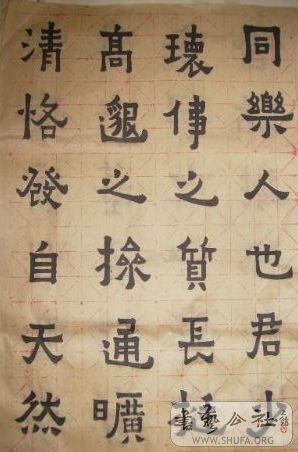 同樂人也君少
瓌偉之質長挺
高邈之操通曠
清恪發自天然
書藝公社
WWW.SHUFA.ORG